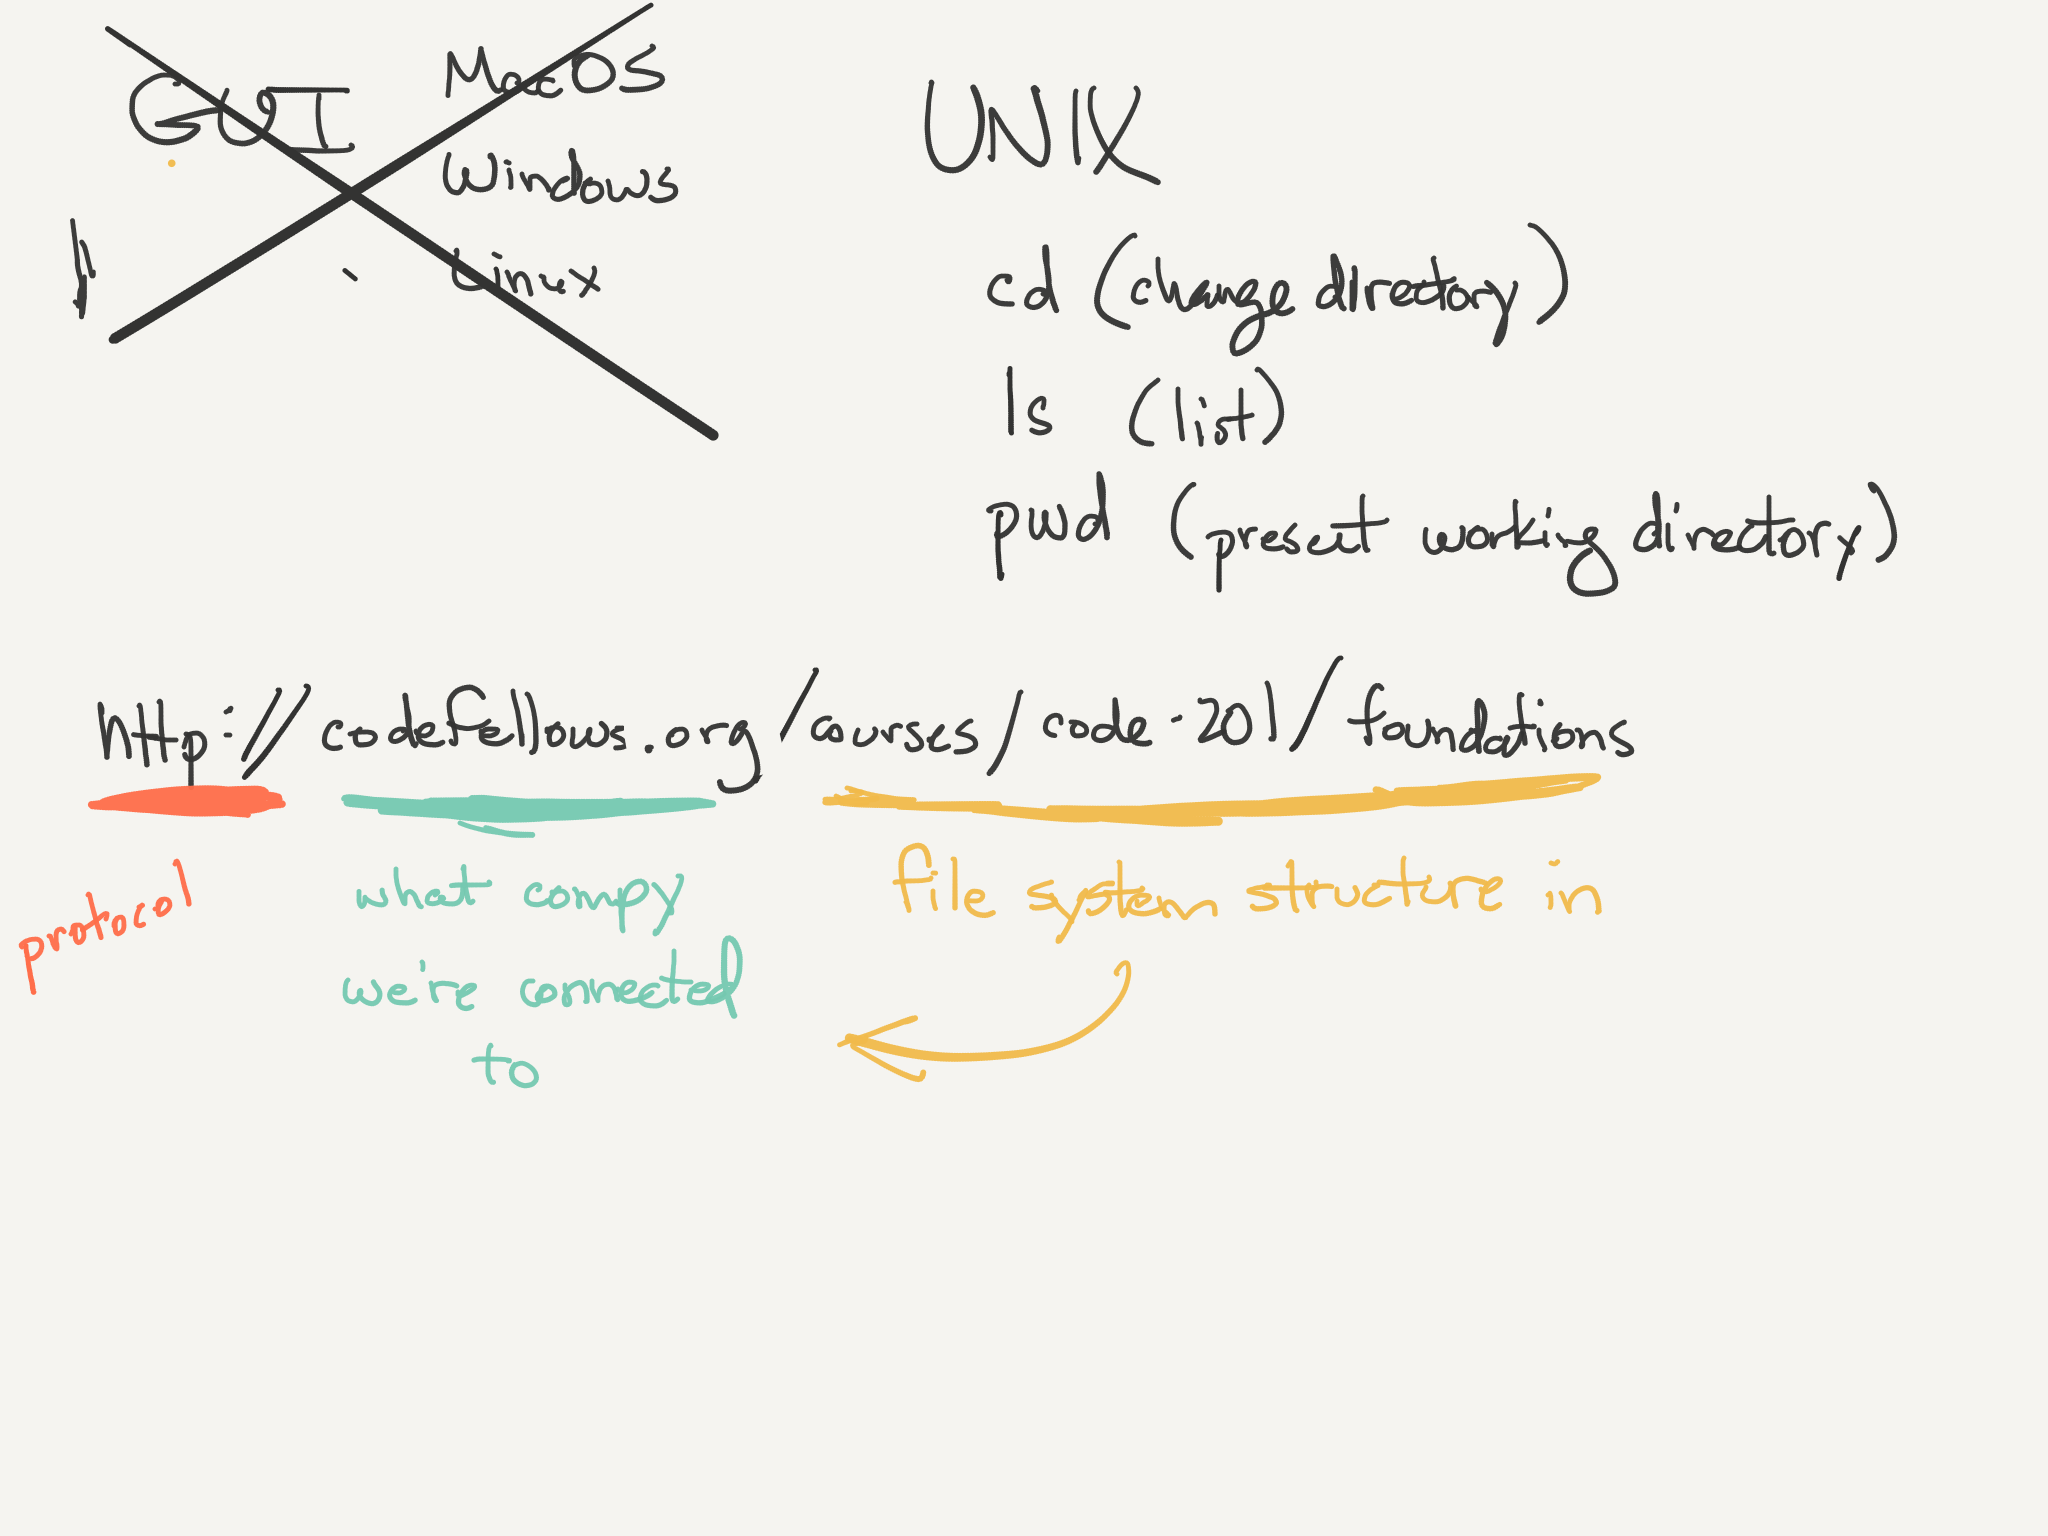 GUI
MacOS
Windows
Linux
UNIX
cd (change directory)
ls (list)
pwd (present working directory)
http://codefellows.org/courses/code-201/foundations
protocol
what compy
we're connected
to
file system structure in